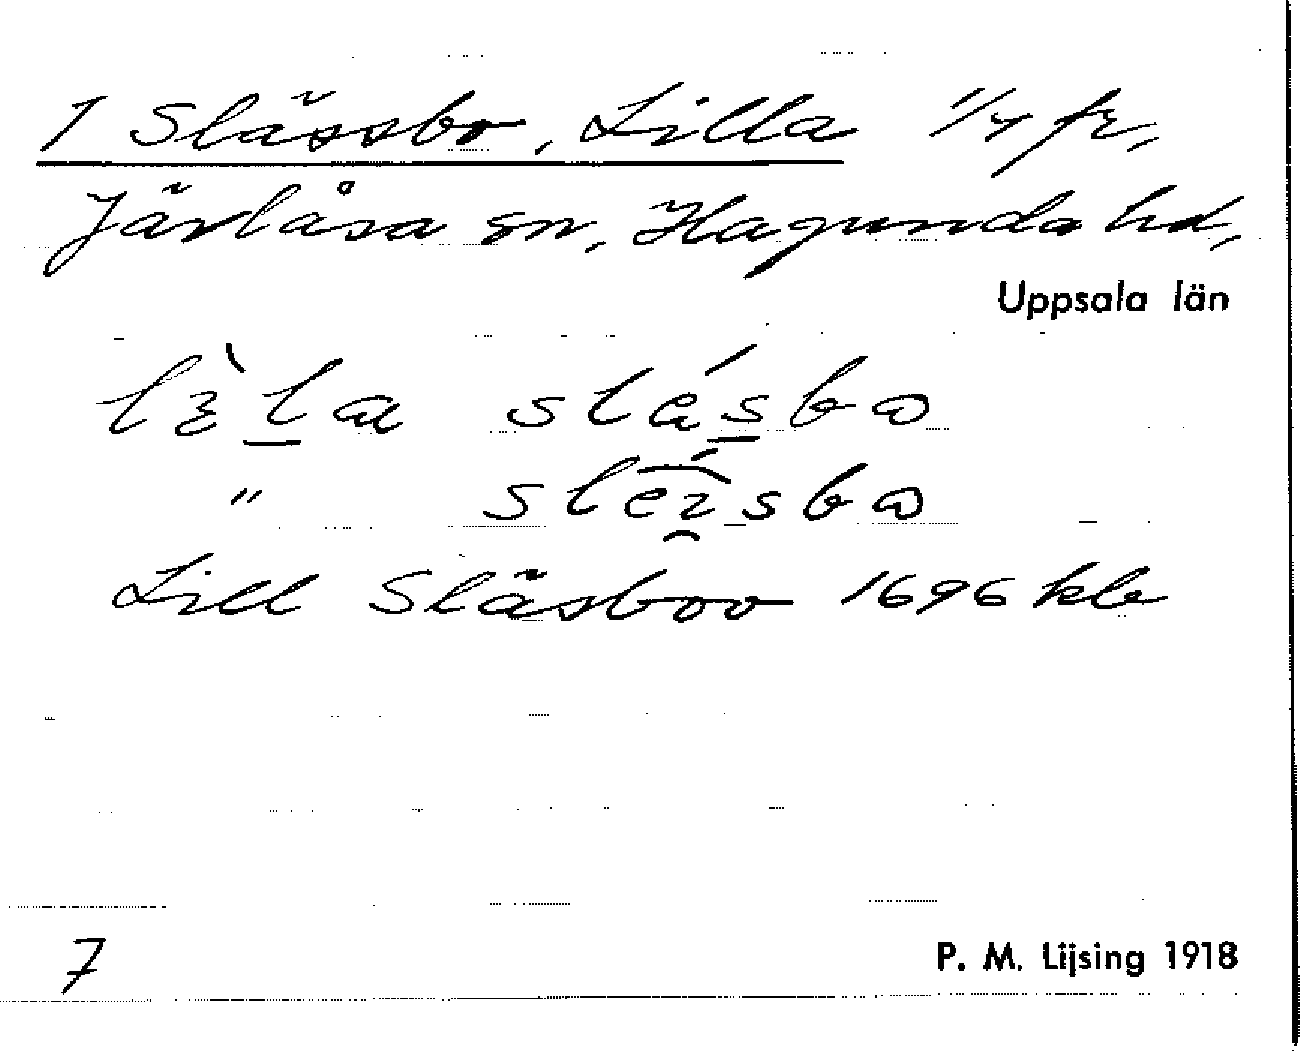 1 Slässbo, Lilla 1/4 fr,
Järlåsa sn, Hagunda hd,
Uppsala län
lìla slésbo
" sleísbo
Lill Släsboo 1696 klb
7
P. M. Lijsing 1918